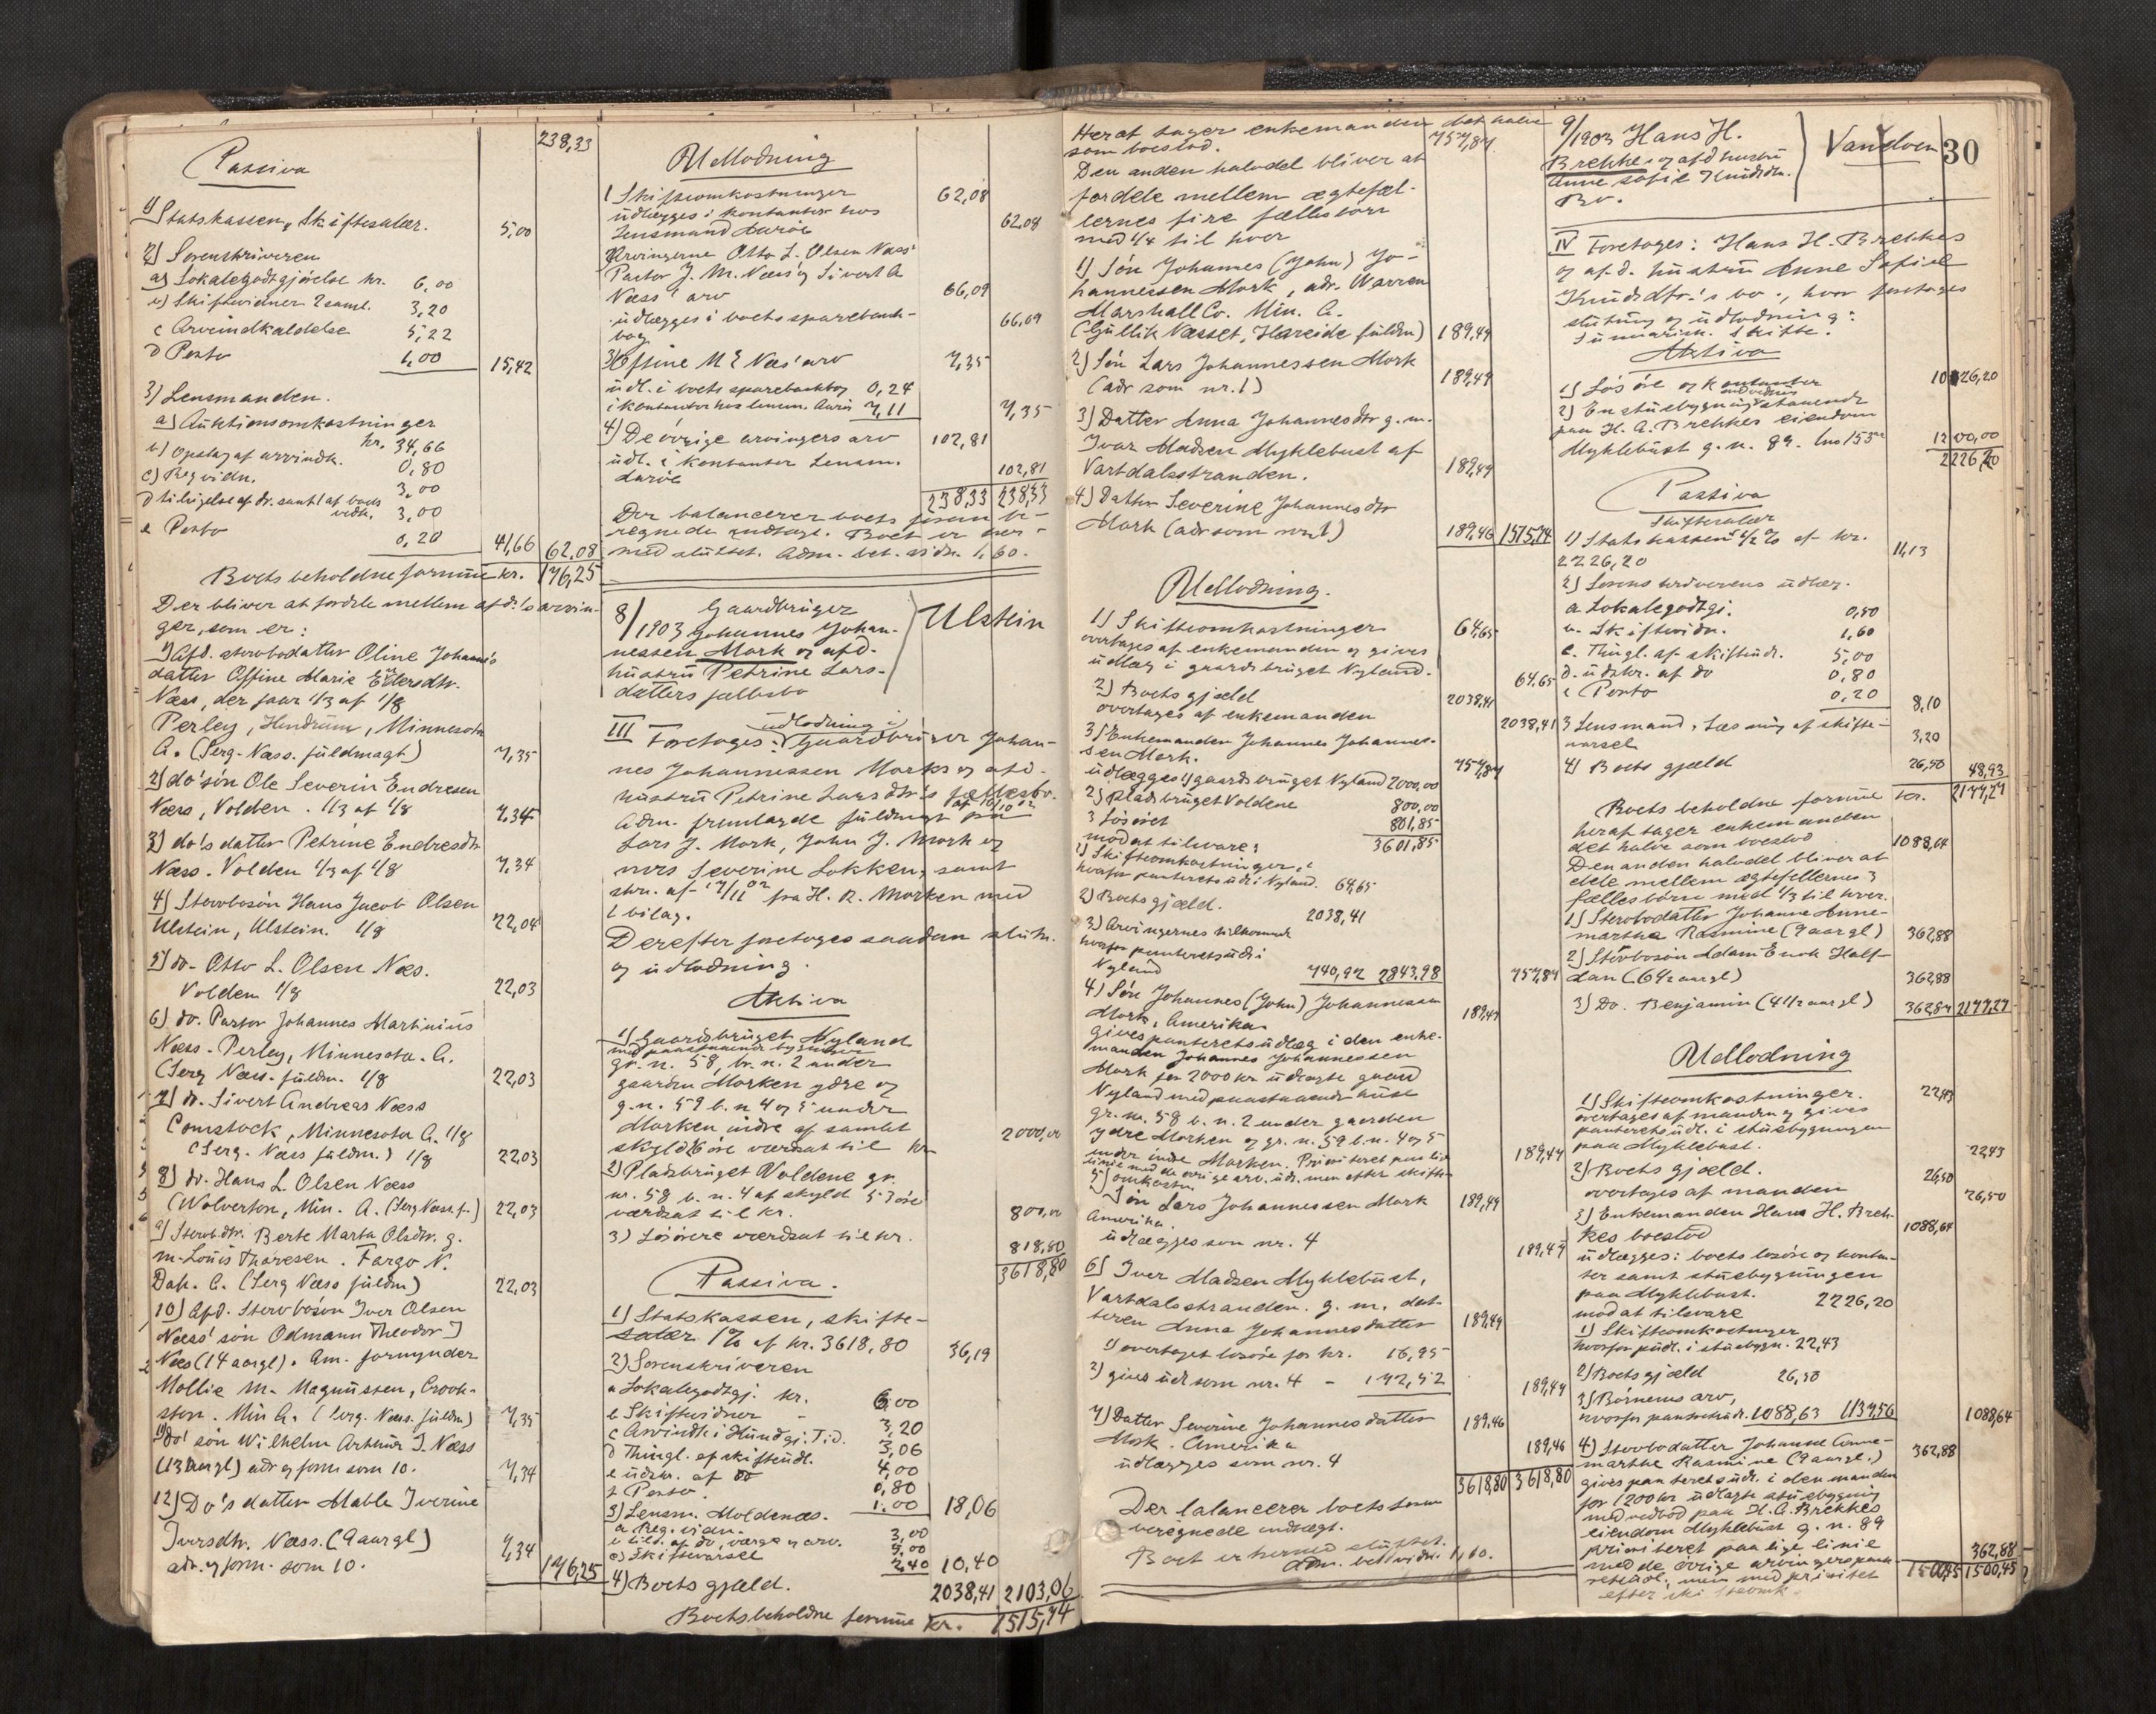 238,33
Passiva
1) Statskassen, Skiftesalær. 5,00
2) Sorenskriveren
a) Lokalegodtgjörelse kr. 6,00
b) Skiftevidner 2 saml. 3,20
c Arveindkaldelse 5,22
d Porto 1,00 15,42
3) Lensmanden.
a) Auktionsomkostninger
kr. 34,66
b) Opslag af arvindk. 0,80
c) Reg vidn. 3,00
d tilsigelse af dr. samt 1 af boets
vidk. 3,00
e Porto 0,20 41,66 62,08
Boets beholdne formue kr. 176,25
Der bliver at fordele mellem afd.'s arvin-
ger, som er:
1) Afd. stervbodatter Oline Johanne's
datter Offine Marie Eilersdtr.
Næss, der faar 1/3 af 1/8
Perley, Hendrum, Minnesota
A. (Serg. Næss. fuldmagt) 7,35
2) do' sön Ole Severin Endresen
Næss, Volden. 1/3 af 1/8 7,34
3) do's datter Petrine Endresdtr
Næss. Volden 1/3 af 1/8 7,34
4) Stervbosön Hans Jacob Olsen
Ulstein, Ulstein. 1/8 22,04
5) do. Otto L. Olsen Næs.
Volden 1/8 22,03
6) do. Pastor Johannes Martinius
Næss. Perley, Minnesota. A.
(Serg Næss. fuldm. 1/8 22,03
7) do. Sivert Andreas Næss
Comstock, Minnesota A. 1/8
(Serg. Næss fuldm.) 1/8 22,03
8) do. Hans L. Olsen Næss
(Wolverton, Min. A. (Serg Næss. f.) 22,03
9) Stervbdtr. Berte Marta Olsdtr. g.
m. Louis Thoresen. Fargo N.
Dak. A. (Serg Næss fuldm) 22,03
10) Afd. Stervbosön Iver Olsen
Næss' sön Odmann Theodor I
Næs (14 aargl). Am. formynder
Mollie M. Magnussen, Crook-
ston. Min A. (Serg. Næss. fuldm) 7,35
11) do' sön Wilhelm Arthur I. Næss
(13 aargl) adr og form som 10. 7,34
12) Do's datter Mable Iverine
Iversdtr. Næss. (9 aargl) 7,34
adr. og form. som 10. 176,25
Udlodning
1 Skifteomkostninger 62,08
udlægges i kontanter hos
Lensmand Aurvåg 62,08
Arvingerne Otto L. Olsen Næss'
Pastor J. M. Næss' og Sivert A
Næss' arv 66,09
udlægges i boets sparebank-
bog 66,09
3) Offine M E Næs' arv 7,35
udl. i boets sparebankbog 0,24
i kontanter hos lensm. 7,11 7,35
4) De övrige arvingers arv 102,81
udl. i kontanter Lensm.
102,81
238,33 238,33
Der balancerer boets form be-
regnede indtægt. Boet er her-
med sluttet. Adm. bet. vidn. 1,60.
8/1903 Gaardbruger
Johannes Johan-
nessen Mork og afd.
hustru Petrine Lars-
datters fællesbo
Ulstein
III Foretoges: udlodning i Gaardbruger Johan-
nes Johannessen Morks og afd.
hustru Petrine Larsdtr's fællesbo.
Adm. fremlagde fuldmagt af 10/10 02 fra
Lars J. Mork, John J. Mork og
mrs Severine Løkken, samt
skr. af 17/11 02 fra H. R. Morken med
1 bilag.
Derefter foretoges saadan slutn.
og udlodning.
Aktiva
1) Gaardsbruget Nyland
med paastaaende bygninger
gr. n. 58, br. n. 2 under
gaarden Morken ydre og
g. n. 59 b. n 4 og 5 under
Morken indre af samlet
skyld 16 öre værdsat til kr 2000,00
2) Pladsbruget Voldene gr.
nr. 58 b. n. 4 af skyld 53 öre
værdsat til kr. 800,00
3) Lösöre værdsat til kr. 818,80
3618,80
Passiva.
1) Statskassen, skifte-
salær 1% af kr. 3618,80 36,19
2) Sorenskriveren
a Lokalegodtgj. kr. 6,00
b Skiftevidner - 3,20
c Arvindk i Kundgj. Tid. 3,06
d Thingl. af skifteudl. 4,00
e udskr. af do 0,80
f Porto. 1.00 18,06
3) Lensm. Moldenæs.
a Reg. vidn. 3,00
b tils. af do, værge og arv. 5,00
c) Skiftevarsel 2,40 10,40
4) Boets gjæld. 2038,41 2103,06
Boets beholdne formue kr. 1515,74
Heraf tager enkemanden det halve
som boeslod. 757,87
Den anden halvdel bliver at
fordele mellem ægtefæl-
lernes fire fællesbörn
med 1/4 til hver
1) Sön Johannes (John) Jo-
hannessen Mork, adr. Warren
Marshall Co. Min. A.
(Gullik Næsset, Hareide fuldm) 189,47
2) Sön Lars Johannessen Mork
(adr som nr. 1) 189,47
3) Datter Anna Johannesdtr g. m.
Ivar Madsen Myklebust af
Vartdalsstranden. 189,47
4) Datter Severine Johannesdtr
Mork (adr som nr. 1) 189,46 1515,74
Udlodning.
1) Skifteomkostninger 64,65
overtages af enkemanden og gives
udlæg i gaardsbruget Nyland. 64,65
2) Boets gjæld 2038,41
overtages af enkemanden 2038,41
3) Enkemanden Johannes Johannes-
sen Mork. 757,87
udlægges 1) gaardsbruget Nyland 2000,00
2) pladsbruget Voldene 800,00
3 Lösöret 801,85
mod at tilsvare: 3601,85
1) Skifteomkostninger,
hvorfor panteretsudl. i Nyland. 64,65
2) Boets gjæld. 2038,41
3) Arvingernes tilkommende
hvorfor panteretsudl i
Nyland 740,92 2843,98 757,87
4) Sön Johannes (John) Johannessen
Mork, Amerika. 189,47
gives panteretsudlæg i den enke-
manden Johannes Johannessen
Mork for 2000 kr udlagte gaard
Nyland med paastaaende huse
gr. nr. 58 b. n. 2 under gaarden
ydre Morken og gr. n. 59 b. n. 4 og 5
under indre Morken. Prioriteret paa lige
linie med de övrige arv. udl. men efter skifte-
omkostn. 189,47
5) Sön Lars Johannessen Mork 189,47
Amerika.
udlægges som nr. 4 189,47
6) Iver Madsen Myklebust,
Vartdalsstranden. g. m. dat-
teren Anna Johannesdatter 189,47
1) overtaget lösöre for kr. 16,95
2) gives udl som nr. 4 - 172,52 189,47
7) Datter Severine Johannesdatter 189,46
Mork. Amerika
udlægges som nr. 4 189,46
3618,80 3618,80
Der balancerer boets form
beregnede indtægt.
Boet er hermed sluttet.
Adm. bet. vidn. 1,60.
9/1903 Hans H.
Brekke og afd hustru
Anne Sofie Knudsdtr.
Bo.
Vanylven 30
IV Foretoges: Hans H. Brekkes
og afd. hustru Anne Sofie
Knudsdtr.'s bo., hvor foretoges
slutning og udlodning:
Summarisk skifte.
Aktiva
1) Lösöre og kontanter 1026,20
2) En stuebygning med vedbod staaende
paa H. A. Brekkes eiendom
Myklebust g. n. 89. 1200,00
2226,20
Passiva
Skiftesalær
1) Statskassen 1/2 % af kr.
2226,20 11,13
2) Sorenskriverens udlæg.
a Lokalegodtgj. 0,50
b. Skiftevidn. 1,60
c. Thingl. af skifteudl. 5,00
d. udskr. af do 0,80
e Porto 0,20 8,10
3 Lensmand, Læsning af skifte-
varsel 3,20
4) Boets gjæld 26,50 48,93
Boets beholdne formue kr. 2177,27
heraf tager enkemanden
det halve som boeslod 1088,64
Den anden halvdel bliver at
dele mellem ægtefellernes 3
fællesbörn med 1/3 til hver.
1) Stervbodatter Johanne Anne-
martha Rasmine (9 aar gl) 362,88
2) Stervbosön Adam Enok Half-
dan (6 1/2 aargl) 362,88
3) Do. Benjamin (4 1/2 aargl) 362,87 2177,27
Udlodning
1) Skifteomkostninger. 22,43
overtages af manden og gives
panteretsudl. i stuebygningen
paa Myklebust. 22,43
2) Boets gjæld. 26,50
overtages af manden 26,50
3) Enkemanden Hans H. Brek-
kes boeslod 1088,64
udlægges: boets lösöre og kontan-
ter samt stuebygningen
paa Myklebust. 2226,20
mod at tilsvare
1) Skifteomkostninger
hvorfor pudl. i stuebygn. 22,43
2) Boets gjæld 26,50
3) Börnenes arv,
hvorfor panteretsudl. 1088,63 1137,56 1088,64
4) Stervbodatter Johanne Anne-
marthe Rasmine (9 aargl.) 362,88
gives panteretsudl. i den manden
for 1200 kr udlagte stuebygning
med vedbod paa H. A. Brekkes
eiendom Myklebust g. n. 89
prioriteret paa lige linie
med de övrige arvingers pante-
retsudl., men med prioritet
efter skifteomk. 362,88
1500,45 1500,45